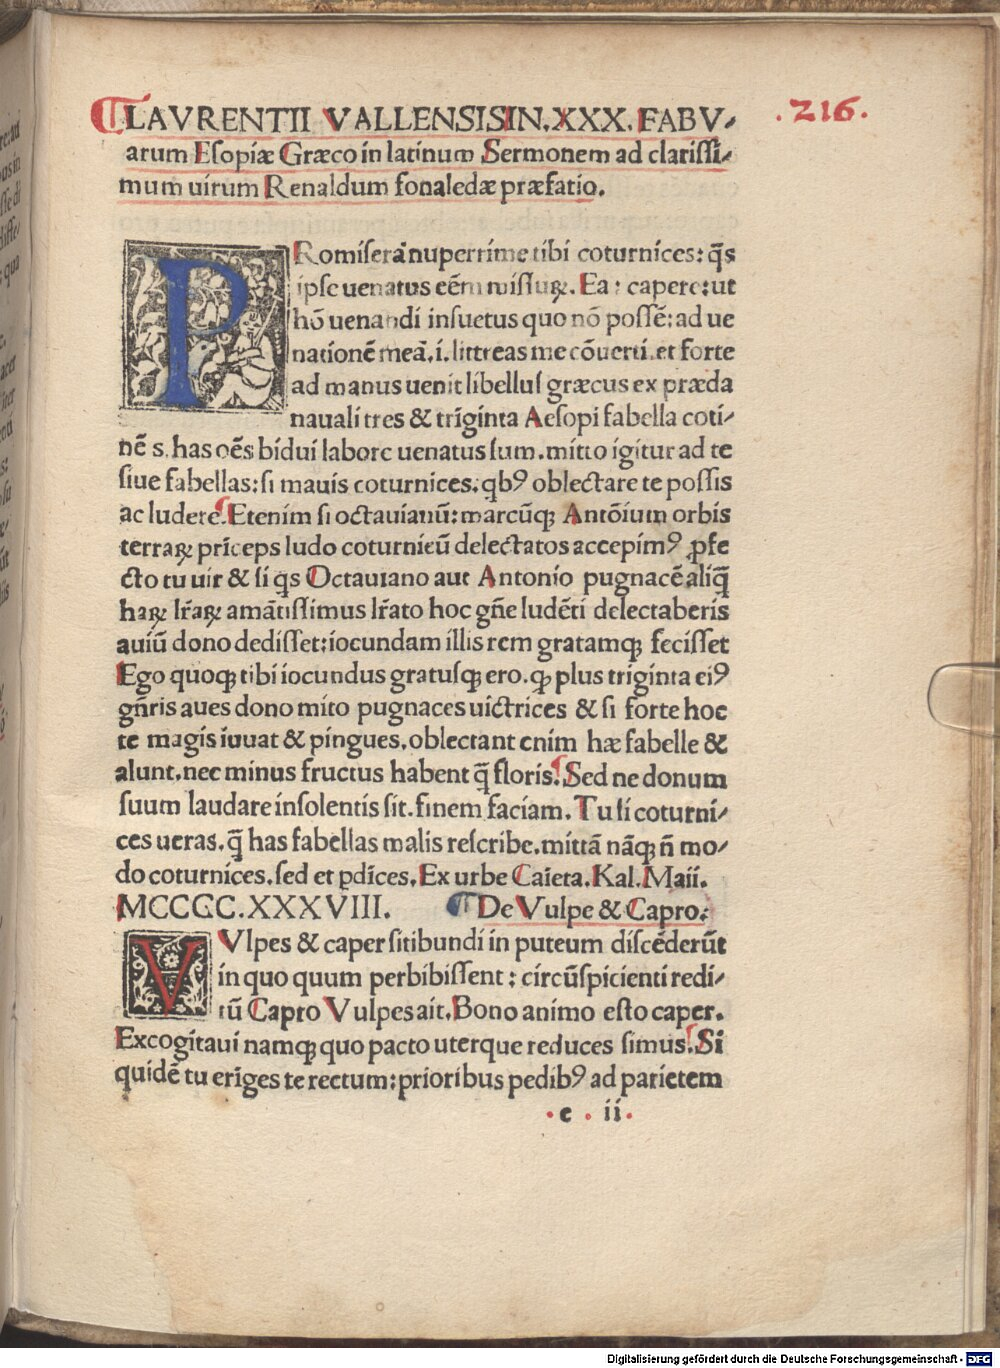 LAVRENTII VALLENSIS IN.XXX.FABV-
.216.
arum Eſopiæ Græco in latinum Sermonem ad clariſſi-
mum uirum Renaldum fonaledæ præfatio.
PRomiſerã nuperrime tibi coturnices: q̃s
ipſe uenatus eẽm miſſuꝝ. Ea: capere:ut
hõ uenandi inſuetus quo nõ poſſẽ: ad ue
nationẽ meã.i.littreas me cõuerti.et forte
ad manus uenit libelluſ græcus ex præda
nauali tres & triginta Aeſopi fabella coti-
nẽ s. has oẽs bidui labore uenatus ſum.mitto igitur ad te
ſiue fabellas:ſi mauis coturnices.qbꝰ oblectare te poſſis
ac ludere. Etenim ſi octauianũ:marcũqꝫ Antõium orbis
terraꝝ prĩceps ludo coturnicũ delectatos accepimꝰ ꝓfe
cto tu uir & ſi q̃s Octauiano aut Antonio pugnacẽ aliq̃
haꝝ lr̃aꝝ amãtiſſimus lr̃ato hoc gñe ludẽti delectaberis
auiũ dono dediſſet:iocundam illis rem gratamqꝫ feciſſet
Ego quoqꝫ tibi iocundus gratuſqꝫ ero.qꝫ plus triginta eiꝰ
gñris aues dono mito pugnaces uictrices & ſi forte hoc
te magis iuuat & pingues,oblectant enim hæ fabelle &
alunt.nec minus fructus habent q̃ floris. Sed ne donum
ſuum laudare inſolentis ſit.finem faciam.Tu ſi coturni-
ces ueras.q̃ has fabellas malis reſcribe.mittã nãqꝫ ñ mo-
do coturnices.ſed et ꝑdices.Ex urbe Caieta.Kal.Maii.
MCCCC.XXXVIII. De Vulpe & Capro.
VVlpes & caper ſitibundi in puteum diſcẽderũt
in quo quum perbibiſſent: circũſpicienti redi-
tũ Capro Vulpes ait.Bono animo eſto caper.
Excogitaui namqꝫ quo pacto uterque reduces ſimus. Si
quidẽ tu eriges te rectum:prioribus pedibꝰ ad parietem
.e.ii.
Digitalisierung gefördert durch die Deutsche Forschungsgemeinschaft - DFG